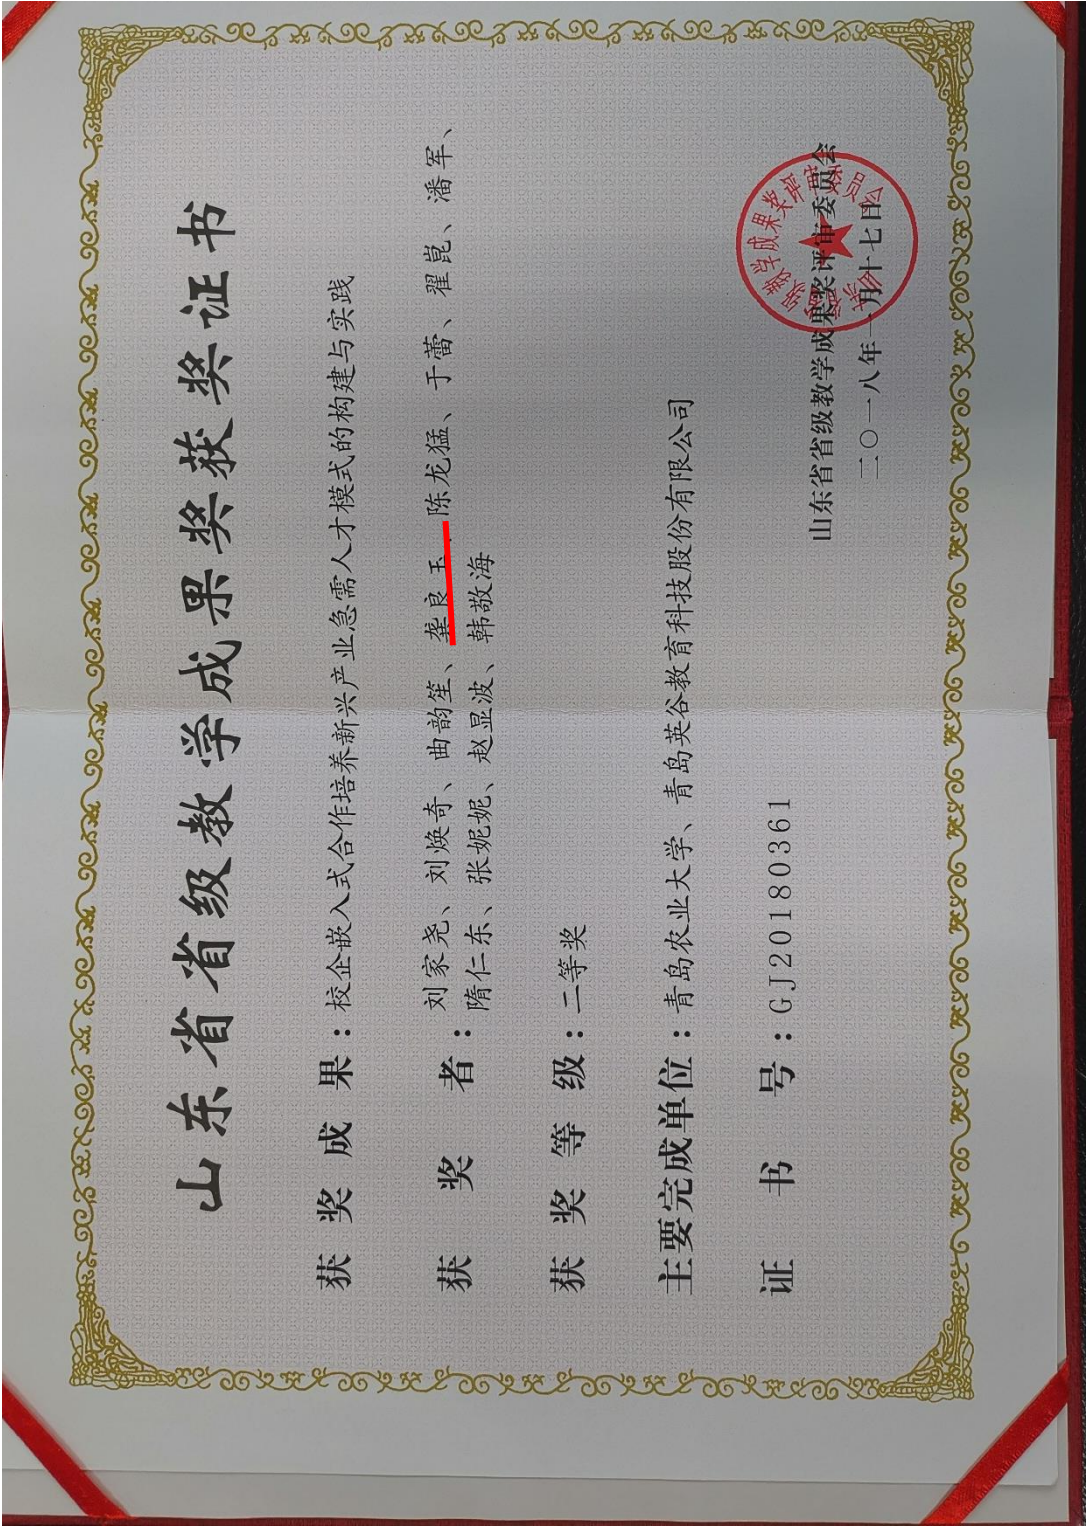 山东省省级教学成果奖获奖证书
获奖成果：校企嵌入式合作培养新兴产业急需人才模式的构建与实践
获奖者：刘家尧、刘焕奇、曲韵笙、龚良玉、陈龙猛、于蕾、翟崑、潘军、
隋仁东、张妮妮、赵显波、韩敬海
获奖等级：二等奖
主要完成单位：青岛农业大学、青岛英谷教育科技股份有限公司
证书号：GJ20180361
山东省省级教学成果奖评审委员会
二〇一八年一月十七日